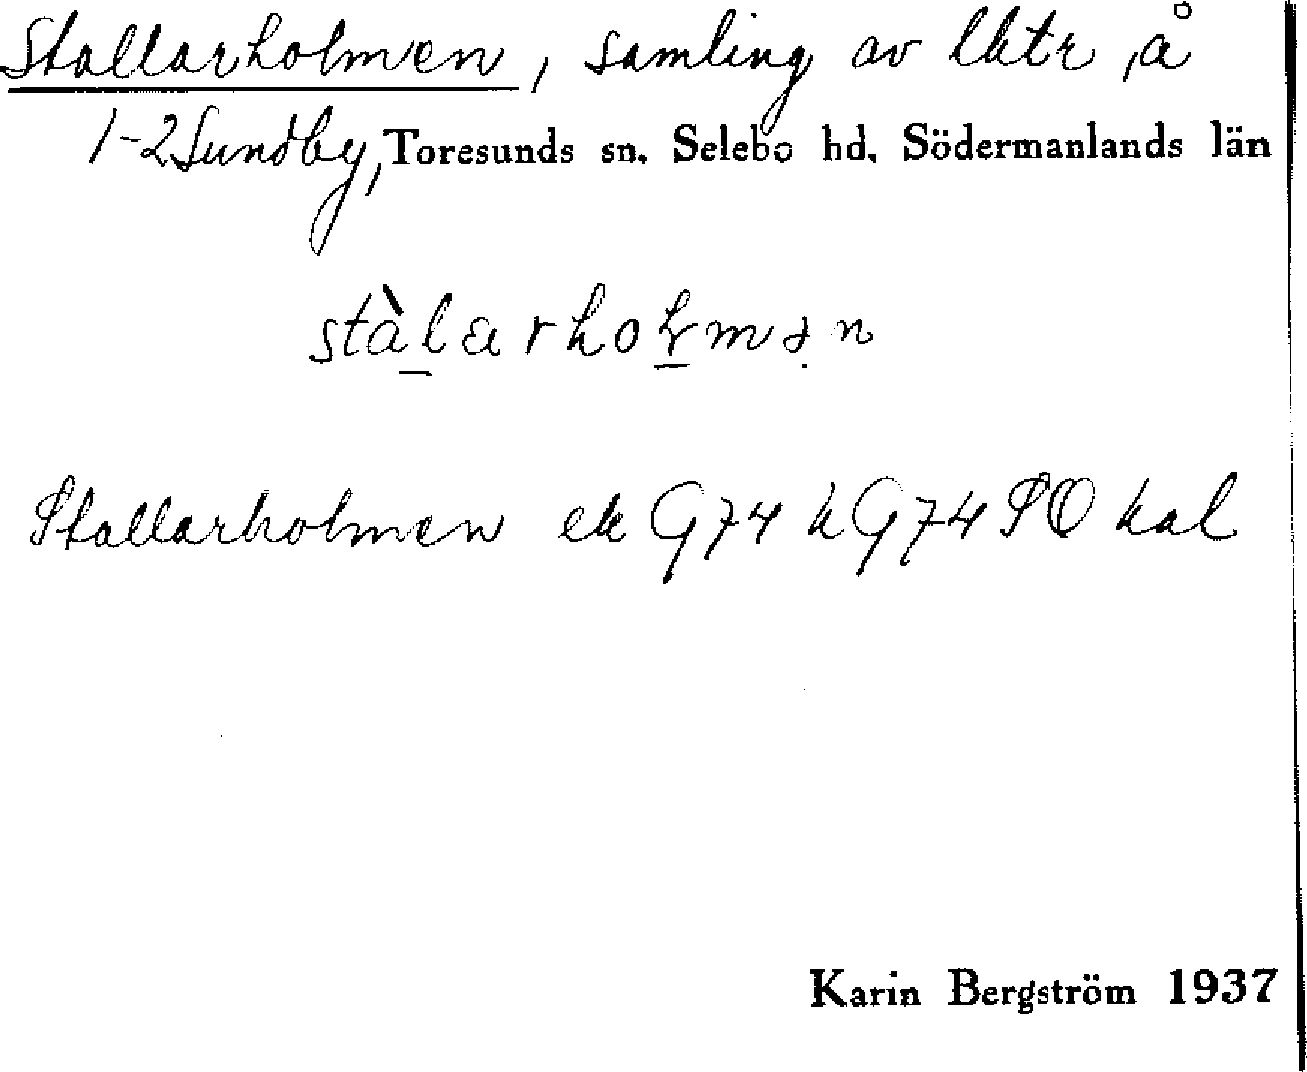 Stallarholmen, samling av lhtr å
1-2 Sundby, Toresunds sn. Selebo hd. Södermanlands län
stàlarholmən
Stallarholmen ek G74 h G74 SO kal
Karin Bergström 1937